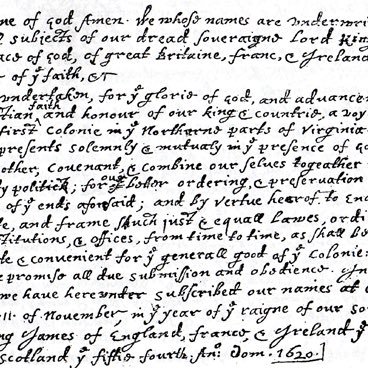 ne of god Amen. We whose names are underwri
l subjects of our dread soveraigne Lord King
ace of god, of great Britaine, franc, & Ireland
r of yͤ faith, &c
undertaken, for yͤ glorie of god, and advancer
tian faith and honour of our king & countrie, a voy
first Colonie in yͤ Northerne parts of Virginia
presents solemnly & mutualy in yͤ presence of Go
other, Covenant, & combine our selves togeather
y politick; for our better ordering, & preservation
of yͤ ends aforsaid; and by vertue hearof, to Ena
te, and frame shuch just & equall Lawes, ordi
stitutions, & offices, from time, to time, as shall be
te & convenient for yͤ generall good of yͤ Colonie:
e promise all due submission and obedience. In
we have hereunder subscribed our names at C
.11. of November, in yͤ year of yͤ raigne of our so
ng James of England, france, & Ireland yͤ
Scotland yͤ fiftie fourth. Anº. Dom. 1620.]